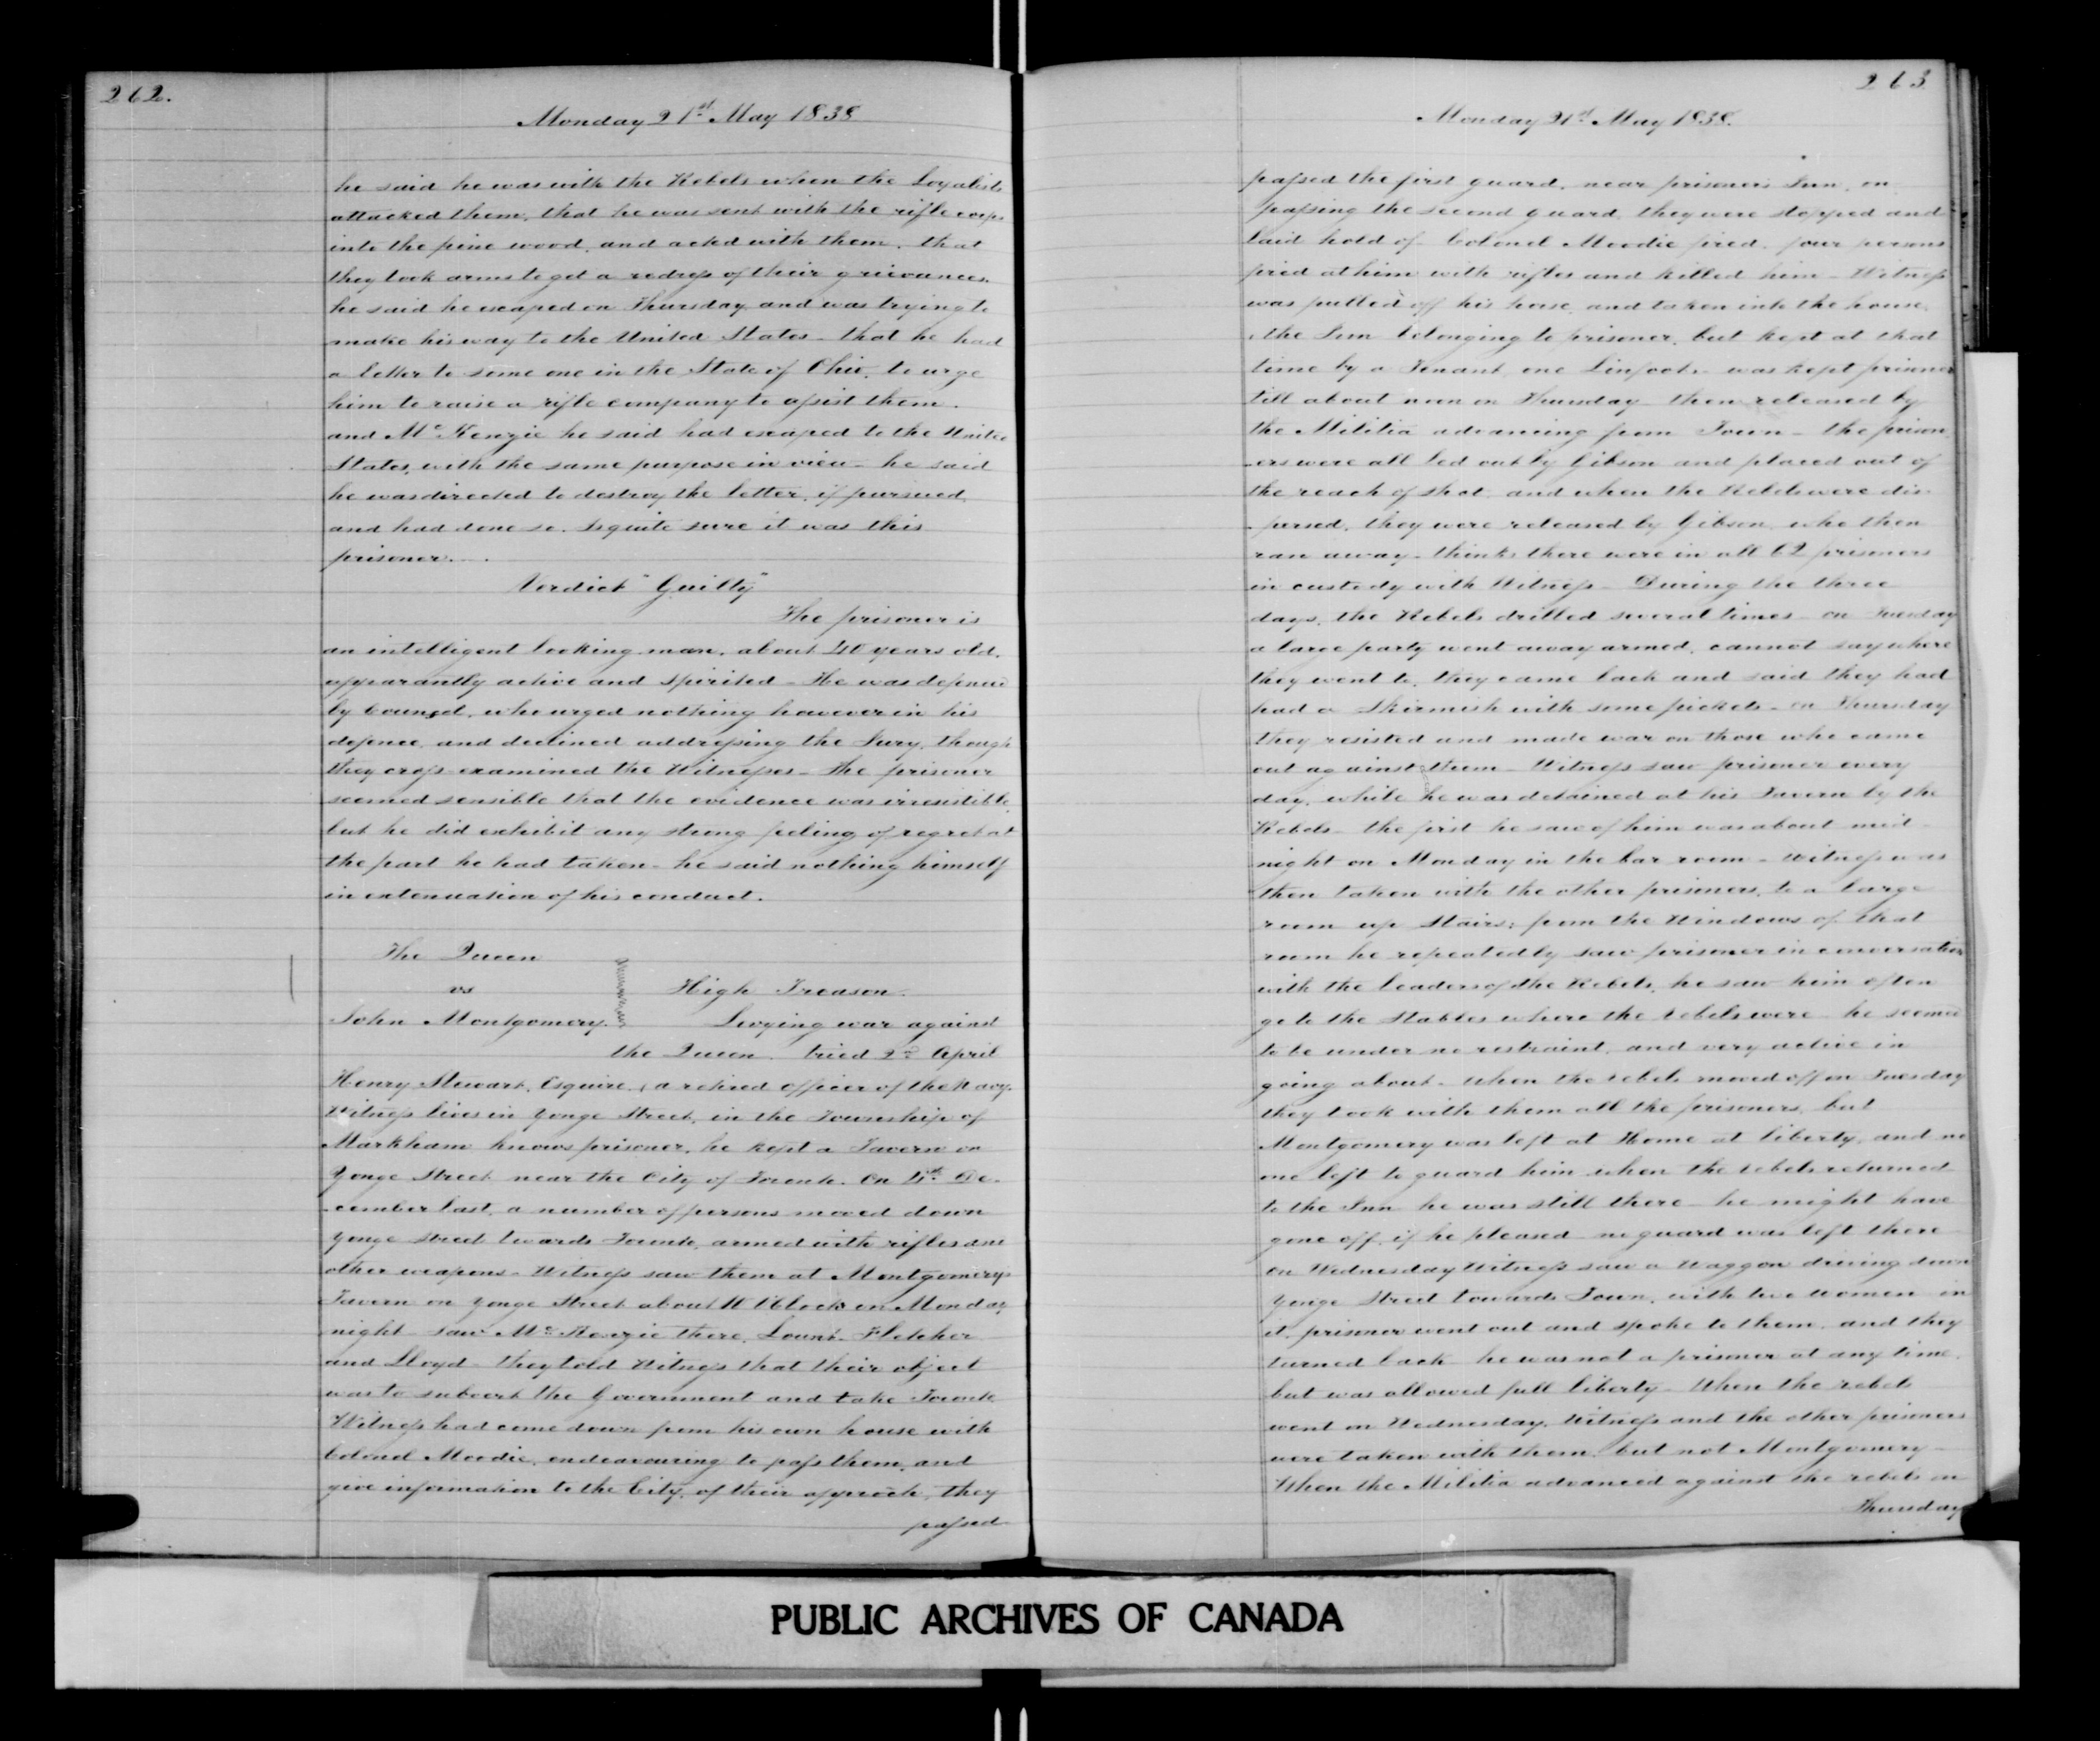 262.
Monday 21st May 1838
he said he was with the Rebels when the Loyalists
attacked them, that he was sent with the rifle corps
into the pine wood, and acted with them. that
they took arms to get a redress of their grievances.
he said he escaped on Thursday and was trying to
make his way to the United States - that he had
a letter to some one in the State of Ohio, to urge
him to raise a rifle company to assist them.
and McKenzie he said had escaped to the United
States, with the same purpose in view - he said
he was directed to destroy the letter, if pursued,
and had done so. Is quite sure it was this
prisoner.
Verdict "Guilty"
The prisoner is
an intelligent looking man, about 40 years old.
apparantly active and spirited - He was defend
by Counsel, who urged nothing however in his
defence, and declined addressing the Jury, though
they cross-examined the Witnesses - The prisoner
seemed sensible that the evidence was irresistible,
but he did exhibit any strong feeling of regret at
the part he had taken - he said nothing himself
in extenuation of his conduct.
The Queen
vs
High Treason.
John Montgomery.
Levying war against
the Queen. tried 2d April
Henry Stewart, Esquire, (a retired officer of the Navy.
Witness lives in Yonge Street, in the Township of
Markham knows prisoner, he kept a Tavern on
Yonge Street near the City of Toronto. On 4th De-
-cember last, a number of persons moved down
Yonge Street towards Toronto, armed with rifles and
other weapons - Witness saw them at Montgomerys
Tavern on Yonge Street about 11 O'Clock on Monday
night - saw McKenzie there, Lount - Fletcher
and Lloyd - they told Witness that their object
was to subvert the Government and take Toronto
Witness had come down from his own house with
Colonel Moodie, endeavouring to pass them, and
give information to the City, of their approch, they
passed
263
Monday 21st May 1838.
passed the first guard, near prisoners Inn, on
passing the second guard, they were stopped and
laid hold of - Colonel Moodie fired. four persons
fired at him with rifles and killed him - Witness
was pulled off his horse, and taken into the house,
the Inn belonging to prisoner, but kept at that
time by a Tenant, one Linfoot. - was kept prisoner
till about noon on Thursday - then released by
the Militia advancing from Town - the prison
-ers were all led out by Gibson and placed out of
the reach of shot, and when the Rebels were dis-
-persed, they were released by Gibson, who then
ran away - thinks there were in all 62 prisoners
in custody with Witness - During the three
days, the Rebels drilled several times - on Tuesday
a large party went away armed, cannot say where
they went to, they came back and said they had
had a Skirmish with some pickets - on Thursday
they resisted and made war on those who came
out against them - Witness saw prisoner every
day, while he was detained at his Tavern by the
Rebels - the first he saw of him was about mid-
night on Monday in the bar room - Witness was
then taken with the other prisoners, to a large
room up Stairs; from the Windows of that
room he repeatedly saw prisoner in conversation
with the leaders of the Rebels, he saw him often
go to the Stables where the rebels were - he seemed
to be under no restraint, and very active in
going about - When the rebels moved off on Tuesday
they took with them all the prisoners, but
Montgomery was left at Home at liberty, and no
one left to guard him when the rebels returned
to the Inn he was still there - he might have
gone off, if he pleased - no guard was left there
on Wednesday Witness saw a Waggon driving down
Yonge Street towards Town, with two women in
it, prisoner went out and spoke to them, and they
turned back he was not a prisoner at any time,
but was allowed full liberty - When the rebels
went on Wednesday, Witness and the other prisoners
were taken with them, but not Montgomery -
When the Militia advanced against the rebels on
Thursday
PUBLIC ARCHIVES OF CANADA